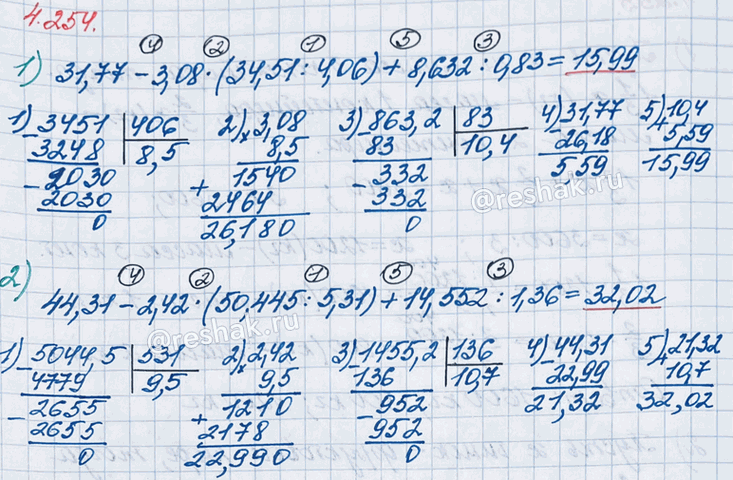 4.254.
④ ② ① ⑤ ③
1) 31,77 – 3,08 · (34,51 : 4,06) + 8,632 : 0,83 = 15,99
1) 3451 | 406 2) × 3,08 3) 863,2 | 83 4) 31,77 5) 10,4
– 3248 | 8,5 8,5 – 83 | 10,4 – 26,18 + 5,59
– 2030 + 1540 – 332 5,59 15,99
2030 2464 332
0 26,180 0
@reshak.ru
④ ② ① ⑤ ③
2) 44,31 – 2,42 · (50,445 : 5,31) + 14,552 : 1,36 = 32,02
@reshak.ru
1) 5044,5 | 531 2) × 2,42 3) 1455,2 | 136 4) 44,31 5) 21,32
– 4779 | 9,5 9,5 – 136 | 10,7 – 22,99 + 10,7
– 2655 + 1210 – 952 21,32 32,02
2655 2178 952
0 22,990 0